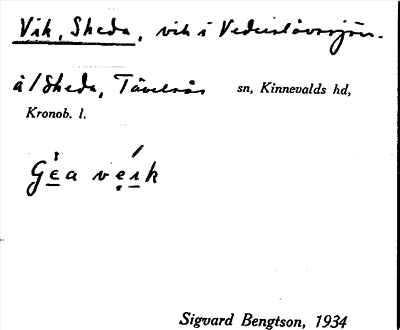 Vik, Sheda, vik i Vederslövssjön.
å/Sheda, Tävelsås sn, Kinnevalds hd,
Kronob. l.
Gɛ̇a vẹɪ́k
Sigvard Bengtson, 1934